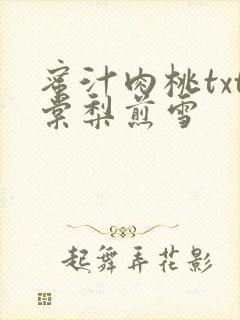 蜜汁肉桃txt
棠梨煎雪
起舞弄花影